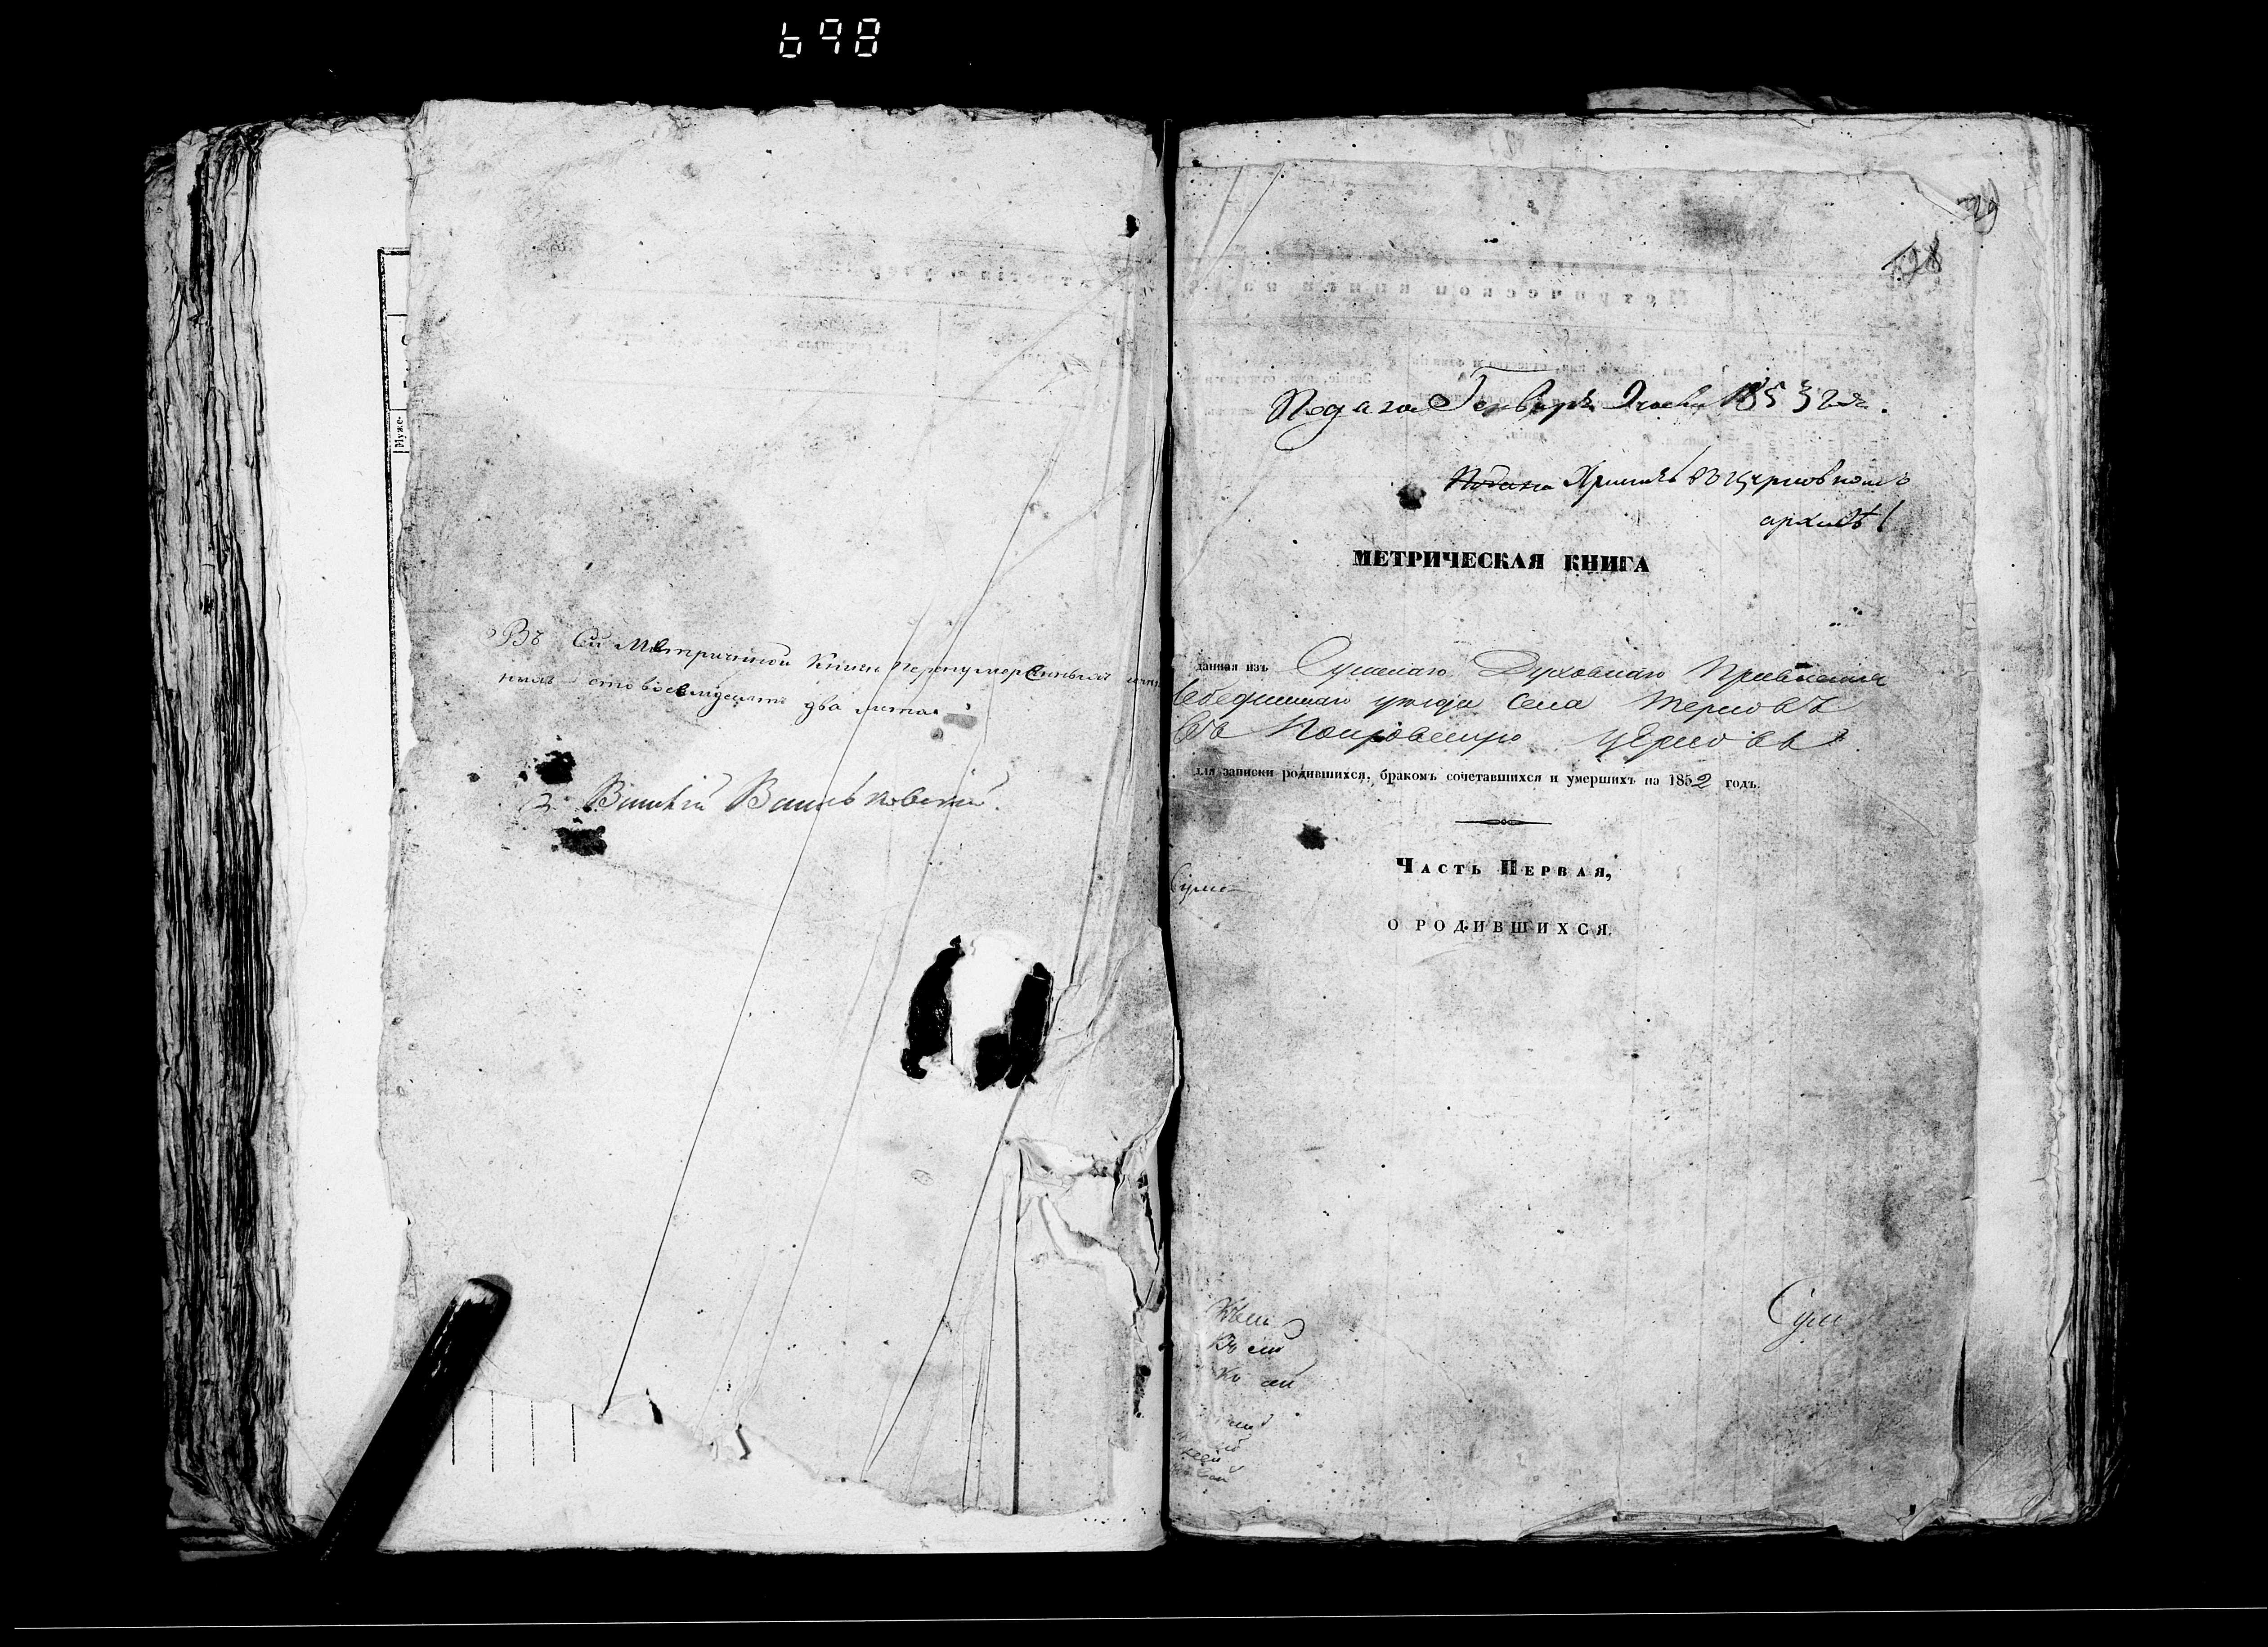 698
Муже-
Въ Сей Метричной Книги перенумерованныхъ
ныхъ сто восемдесятъ два листа
Василій Васильковскій.
528
Подана Генваря 9 числа 1853 года.
Подана Хранить въ церковномъ
архивѣ
МЕТРИЧЕСКАЯ КНИГА
данная изъ Сумскаго Духовнаго Правленія
Лебединскаго уѣзда Села Терновъ
въ Покровскую церковь
для записки родившихся, бракомъ сочетавшихся и умершихъ на 1852 годъ.
Часть Первая,
О РОДИВШИХСЯ.
Сумс-
Сум
Къ сей
Къ сей
Ко сей